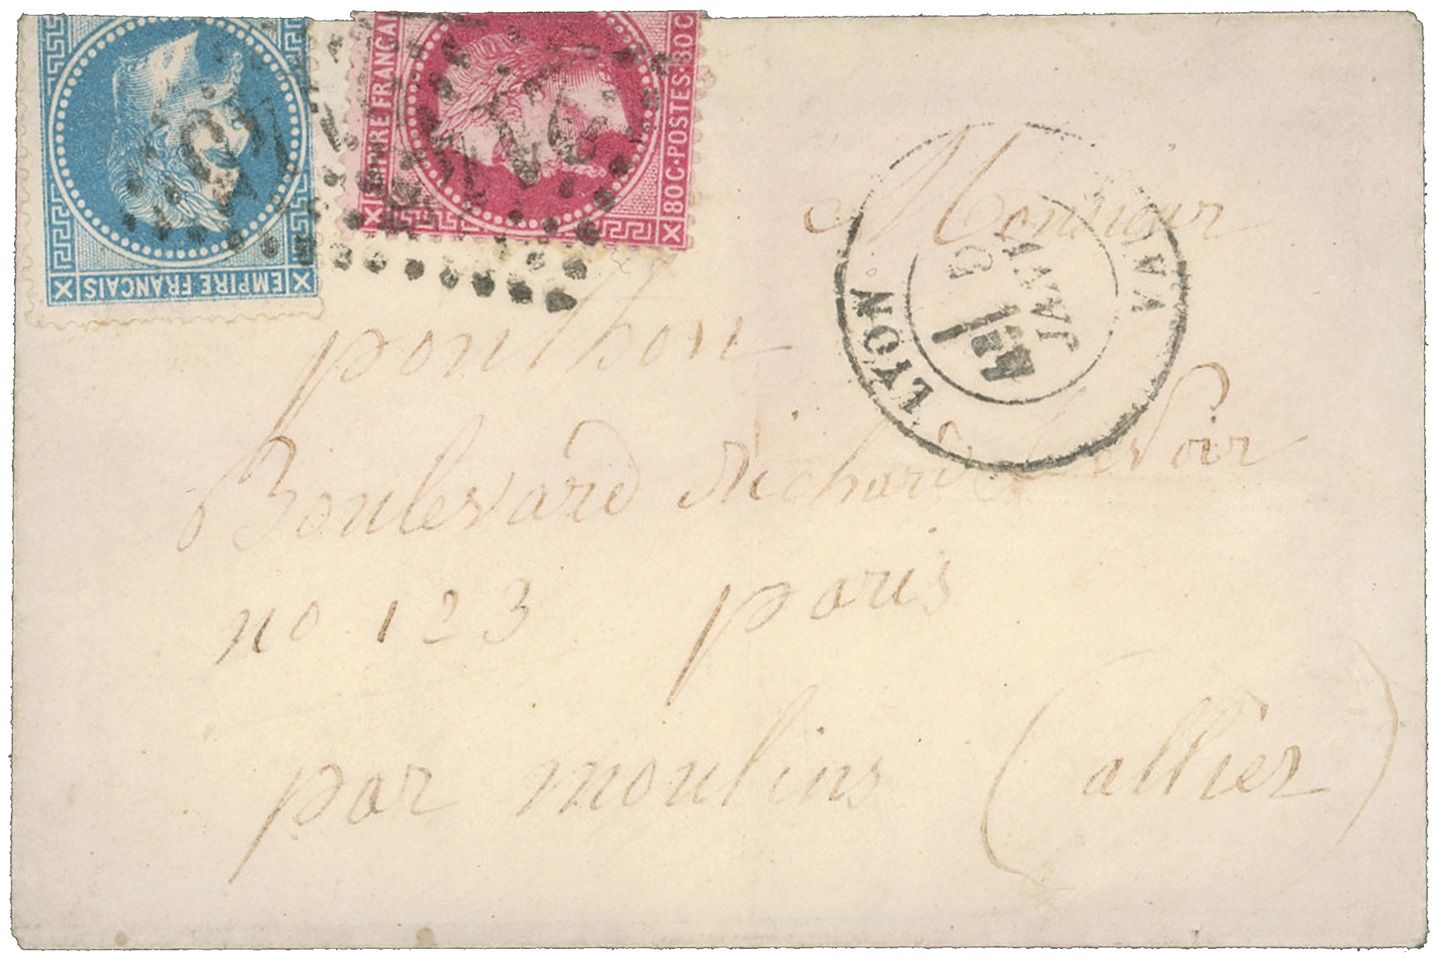 EMPIRE FRANÇAIS
EMPIRE FRANÇAI
80C·POSTES·80C
LYON
VAI
JANV
Monsieur
ponthon
Boulevard Richard Lenoir
no 123 paris
par moulins (allier)